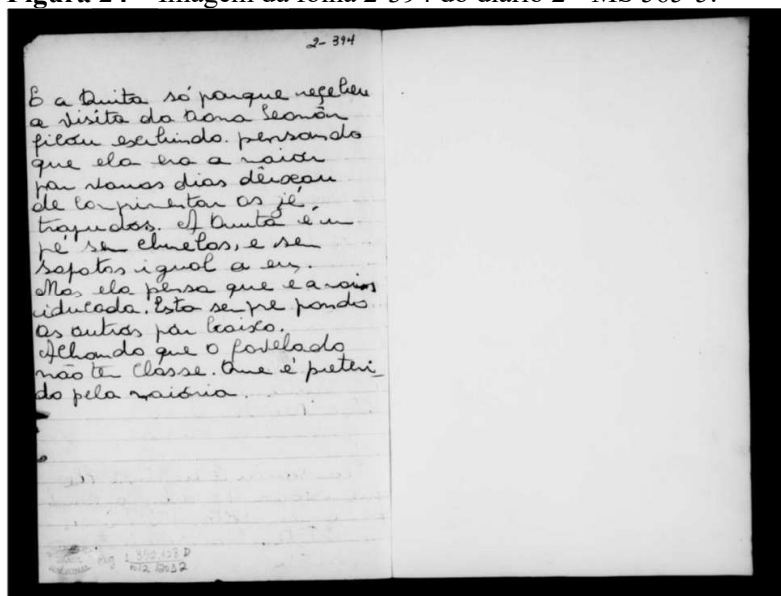 Figura 24 – Imagem da folha 2-394 do diário 2 – MS 565-5.
2-394
E a Quita só porque reçebeu
a visita da Dona Leonôr
ficou exibindo. pensando
que ela era a maior
por varios dias dêixou
de comprimentar os jé
trapudos. A Quita é um
pé sem chinelos, e sem
sapatos igual a eu,
Mas ela pensa que e a mais
iducada. Esta sempre pondo
os outros por baixo.
Achando que o favelado
não tem classe. Que é preteri_
do pela maiória.